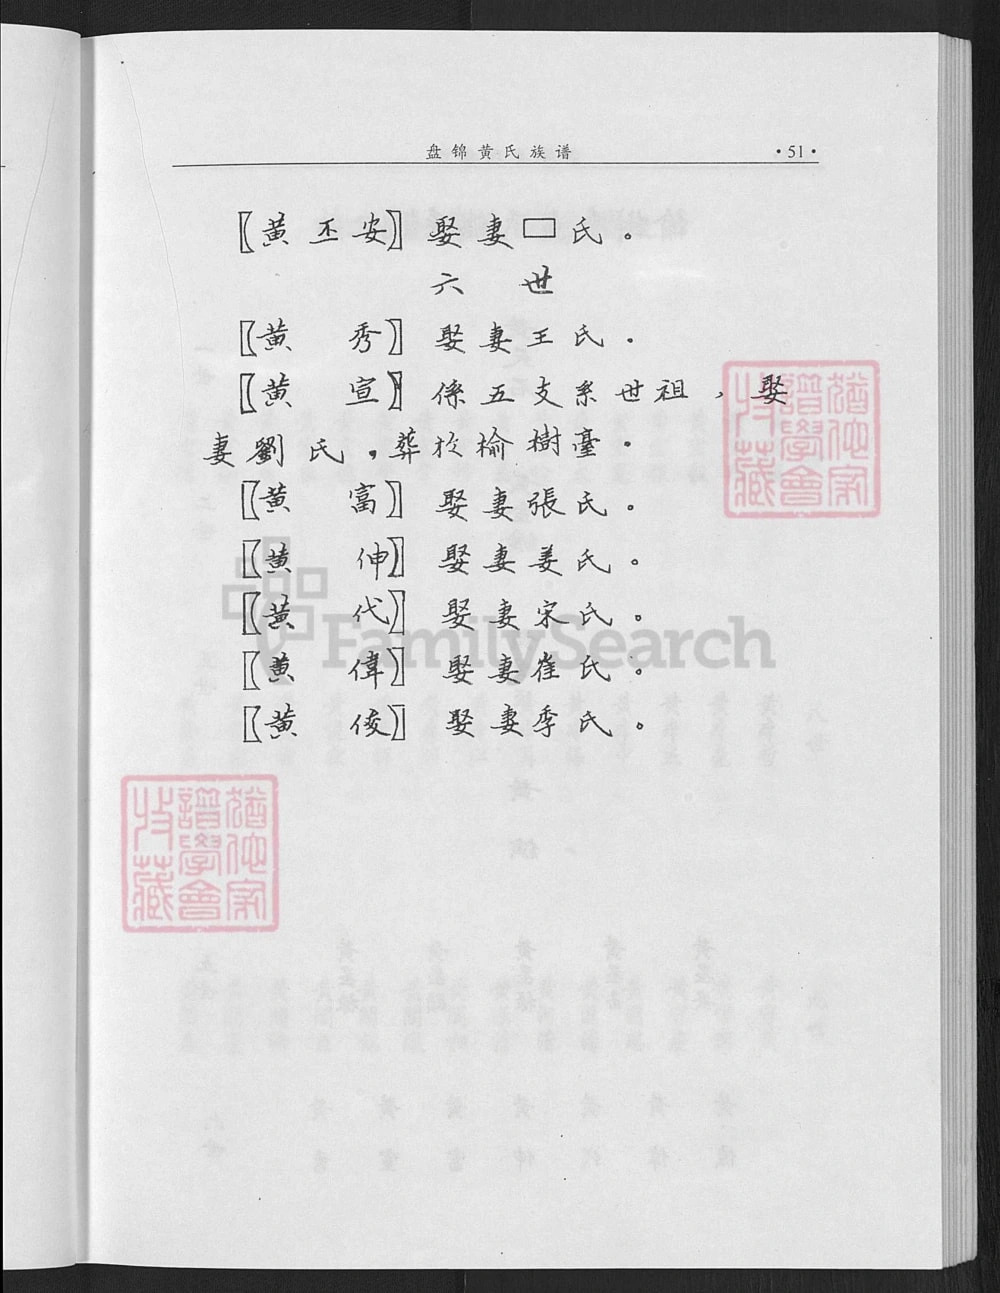 盘锦黄氏族谱 ·51·
〖黄丕安〗娶妻□氏。
六世
〖黄秀〗娶妻王氏.
〖黄宣〗係五支系世祖,娶
妻劉氏,葬於榆樹臺.
〖黄富〗娶妻張氏。
〖黄伸〗娶妻姜氏。
〖黄代〗娶妻宋氏。
〖黄偉〗娶妻崔氏。
〖黄俊〗娶妻季氏。
FamilySearch
猶他家
譜學會
特藏
猶他家
譜學會
特藏